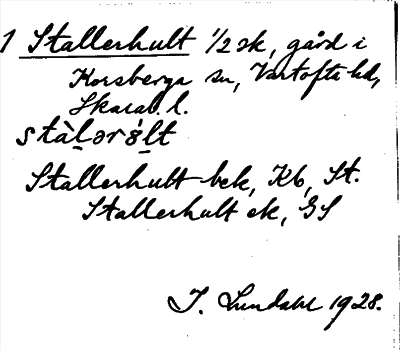 1 Stallerhult 1/2 sk, gård i
Korsberga sn, Vartofta hd,
Skarab. l.
stàl̠ərål̠t
Stallerhult bek, Kb, St.
Stallerhult ek, GS
I. Lundahl 1928.